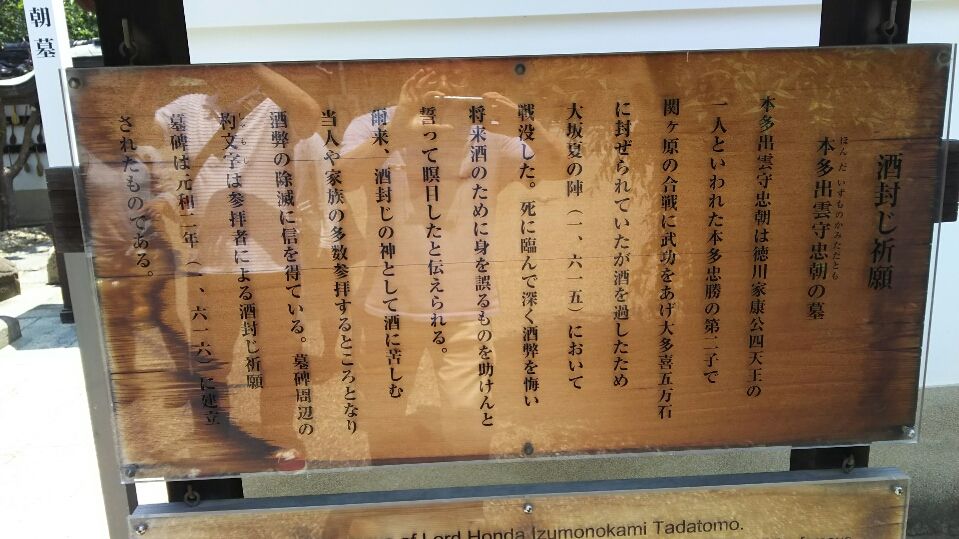 酒封じ祈願
本多出雲守忠朝の墓
ほんだいずものかみただとも
本多出雲守忠朝は徳川家康公四天王の
一人といわれた本多忠勝の第二子で
関ヶ原の合戦に武功をあげ大多喜五万石
に封ぜられていたが酒を過したため
大坂夏の陣(一、六一五)において
戦没した。死に臨んで深く酒弊を悔い
将来酒のために身を誤るものを助けんと
誓って瞑目したと伝えられる。
爾来、酒封じの神として酒に苦しむ
当人や家族の多数参拝するところとなり
酒弊の除滅に信を得ている。墓碑周辺の
杓文字は参拝者による酒封じ祈願
墓碑は元和二年(一、六一六)に建立
されたものである。
朝墓
of Lord Honda Izumonokami Tadatomo.